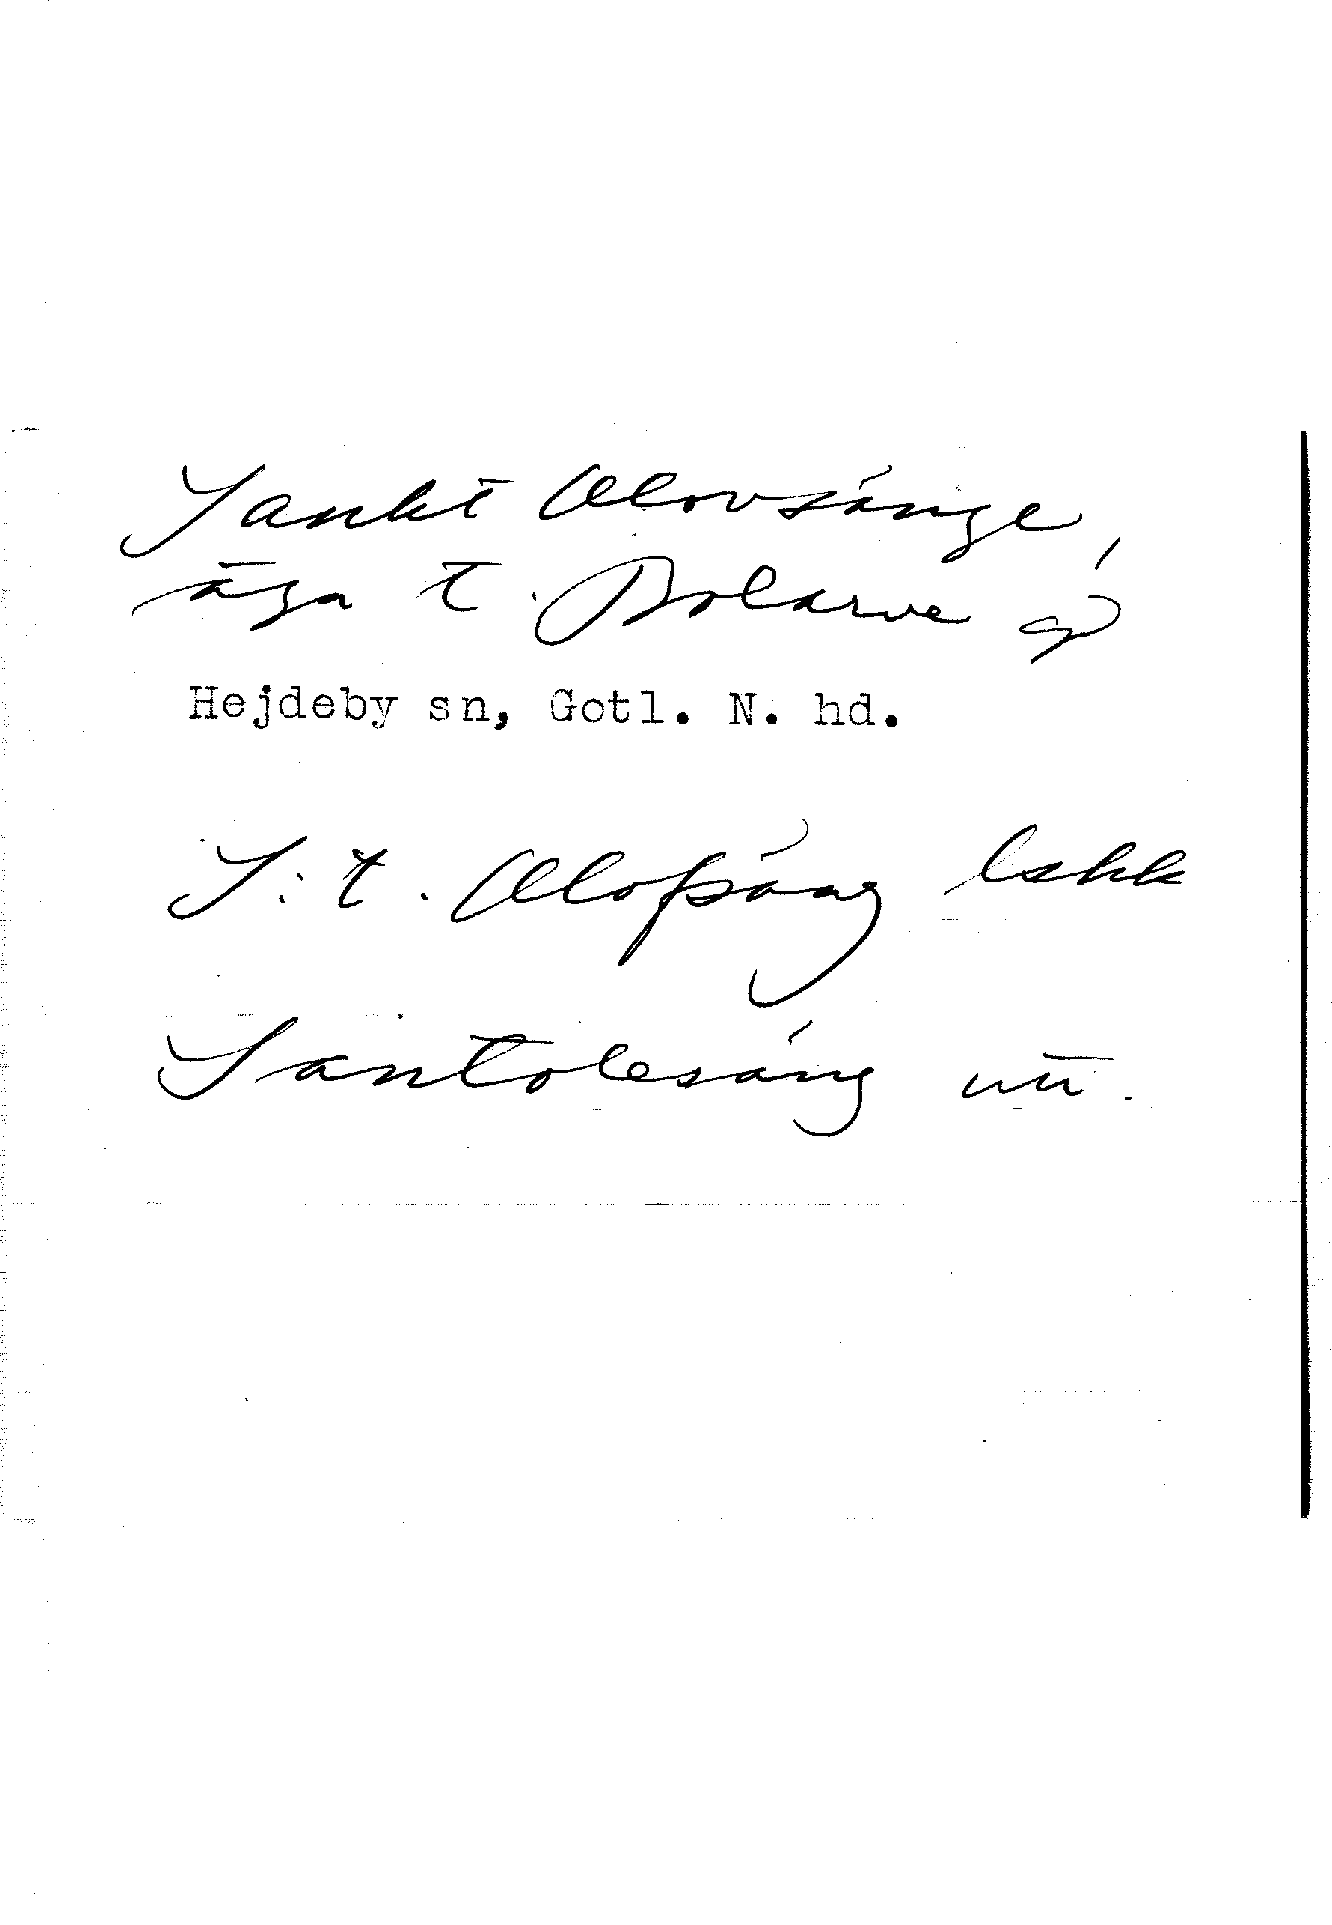 Sankt Olovsänge,
äga t. Bolarve
Hejdeby sn, Gotl. N. hd.
S:t. Olofsäng lskk
Santolesäng utt.